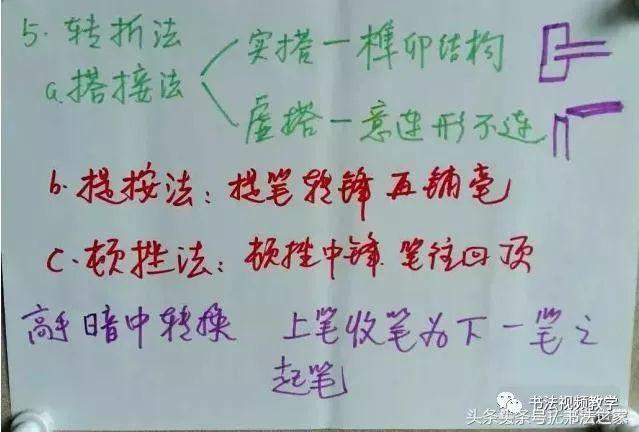 5. 转折法
a. 搭接法
实搭一榫卯结构
虚搭一意连形不连
b. 提按法：提笔转锋再铺毫
c. 顿挫法：顿挫中锋.笔往回顶
高手暗中转换 上笔收笔为下一笔之
起笔
书法视频教学
头条